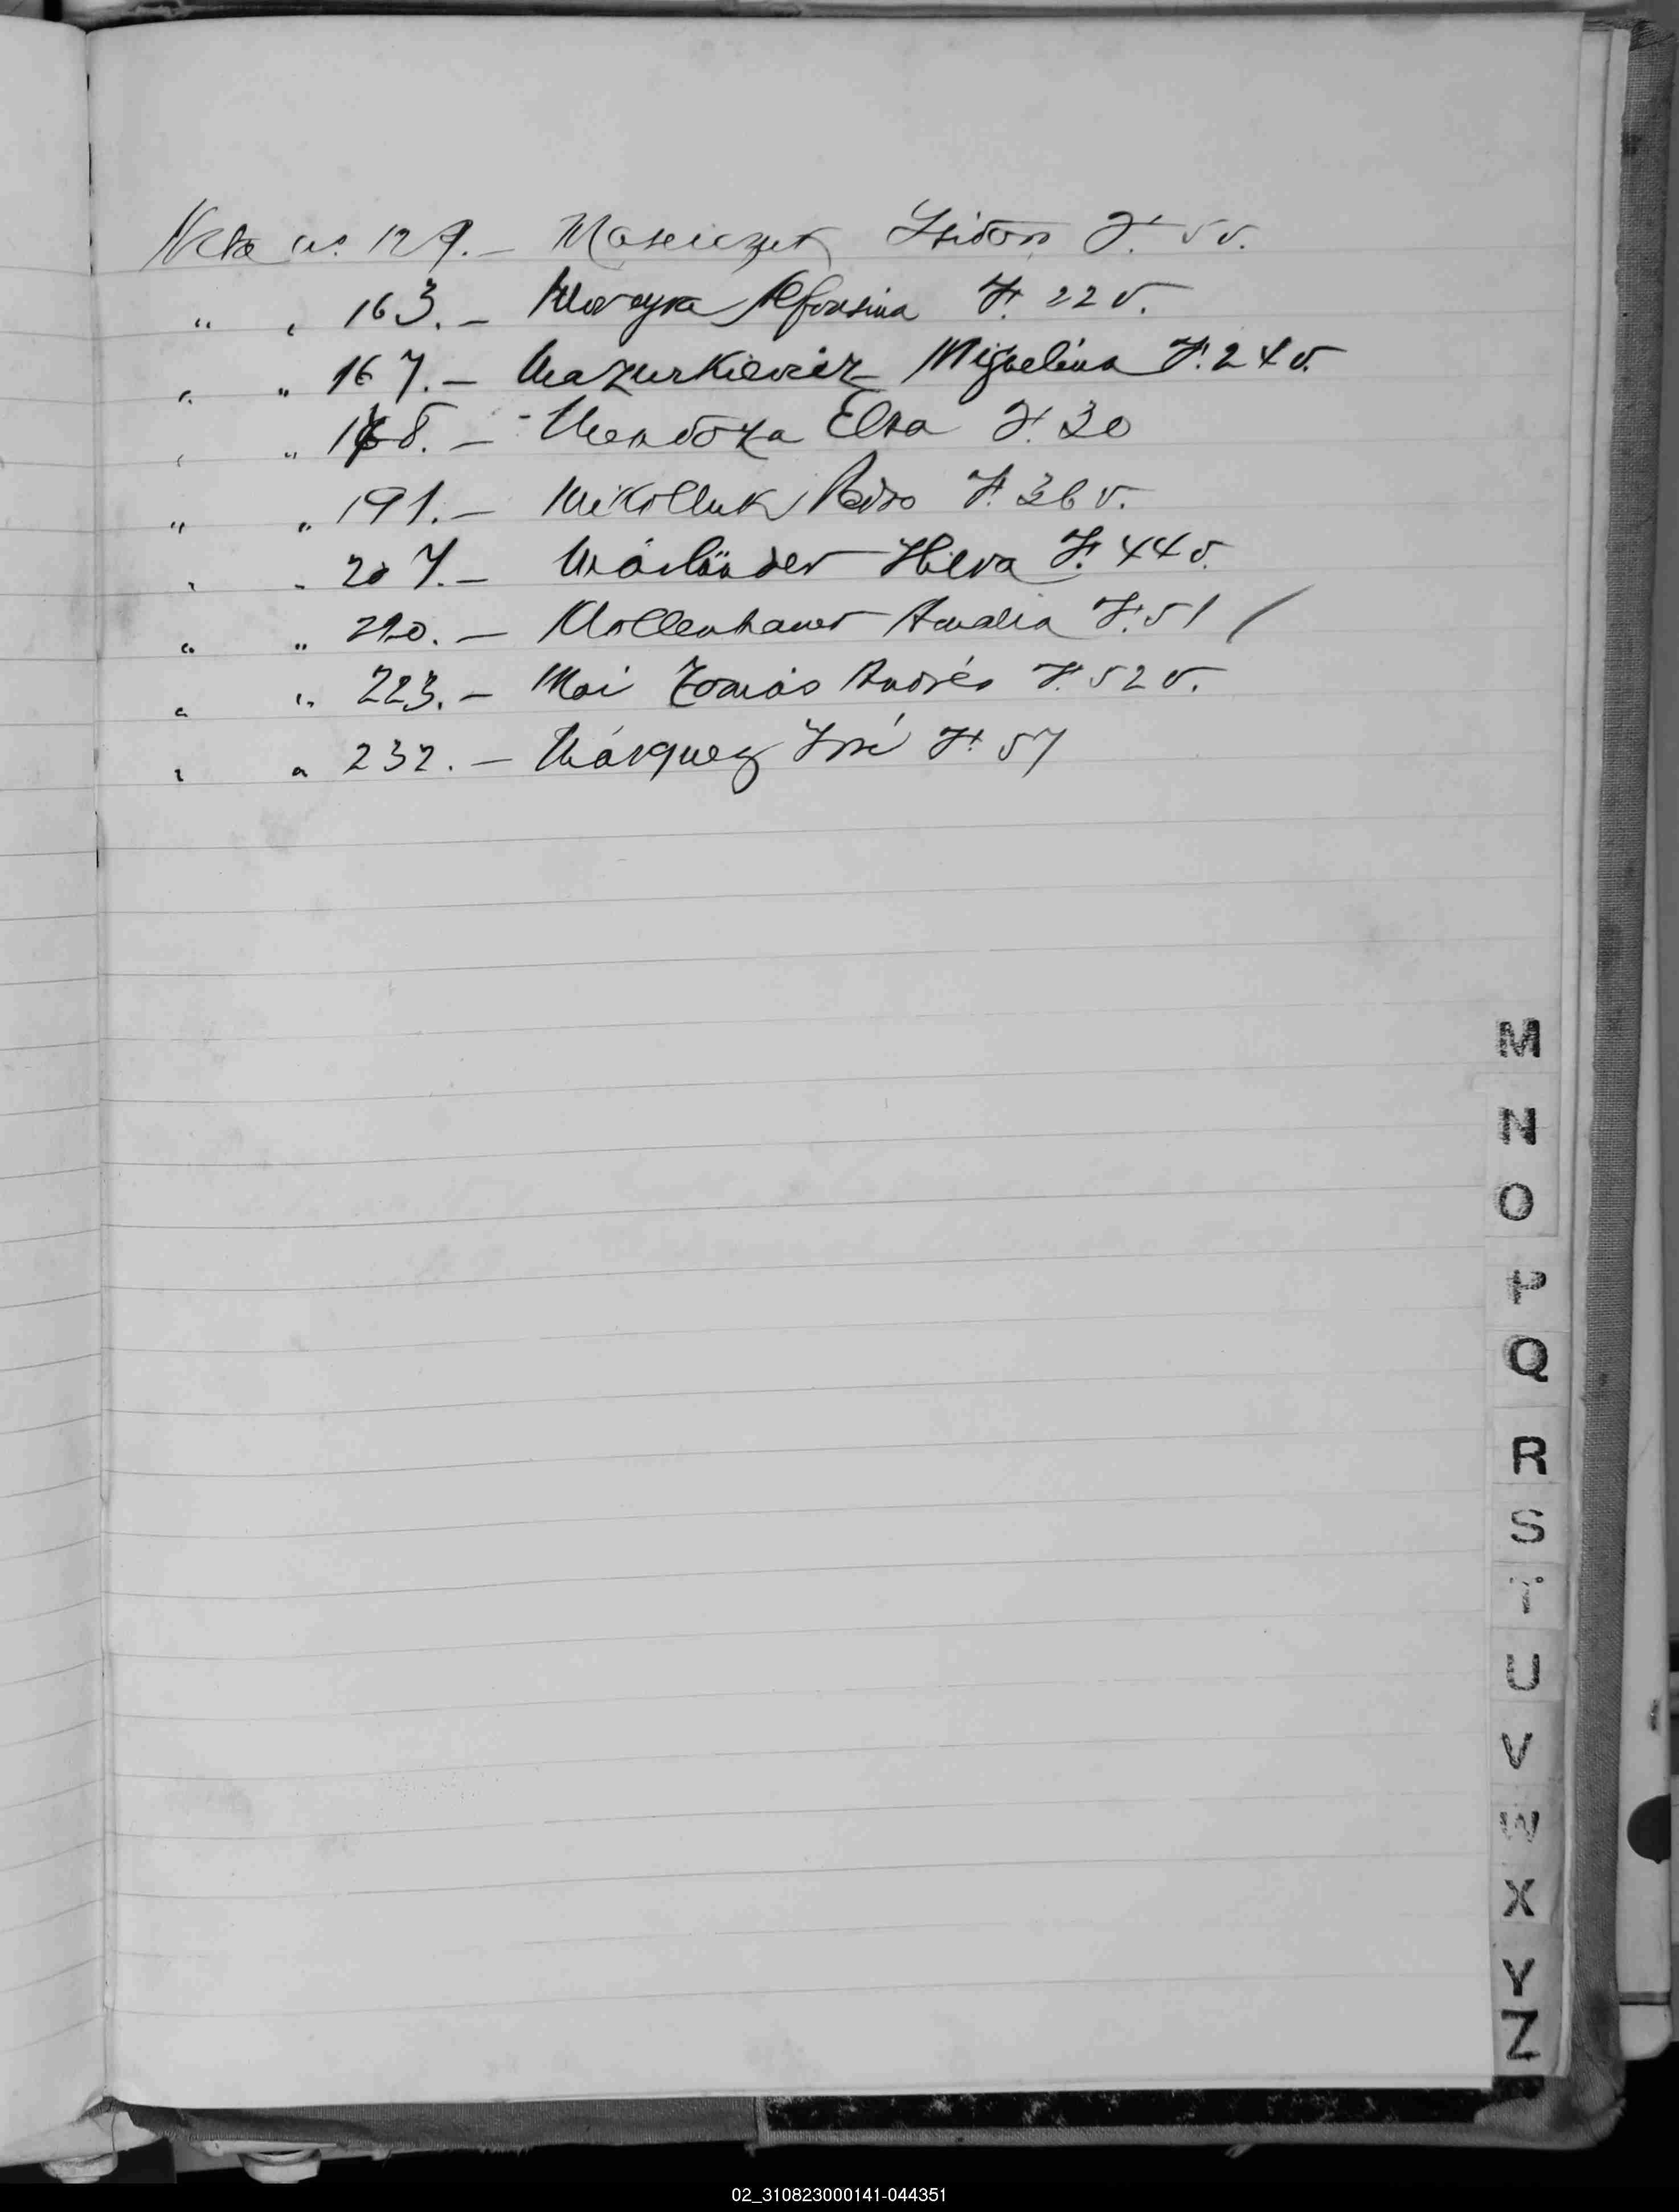 Acta no. 129.- Maseiczuk Isidoro F. 5 v.
" " 163.- Moreyra Alfonsina F. 22 v.
" " 167.- Mazurkievicz Miguelina F. 24 v.
" " 178.- Mendoza Elsa F. 30
" " 191.- Mikolluk Pedro F. 36 v.
" " 207.- Hilda F. 44 v.
" " 220.- Mollenhauer Amalia F. 51
" " 223.- Mai Tomás Andrés F. 52 v.
" " 232.- Márquez José F. 57
M
N
O
P
Q
R
S
T
U
V
W
X
Y
Z
02_310823000141-044351